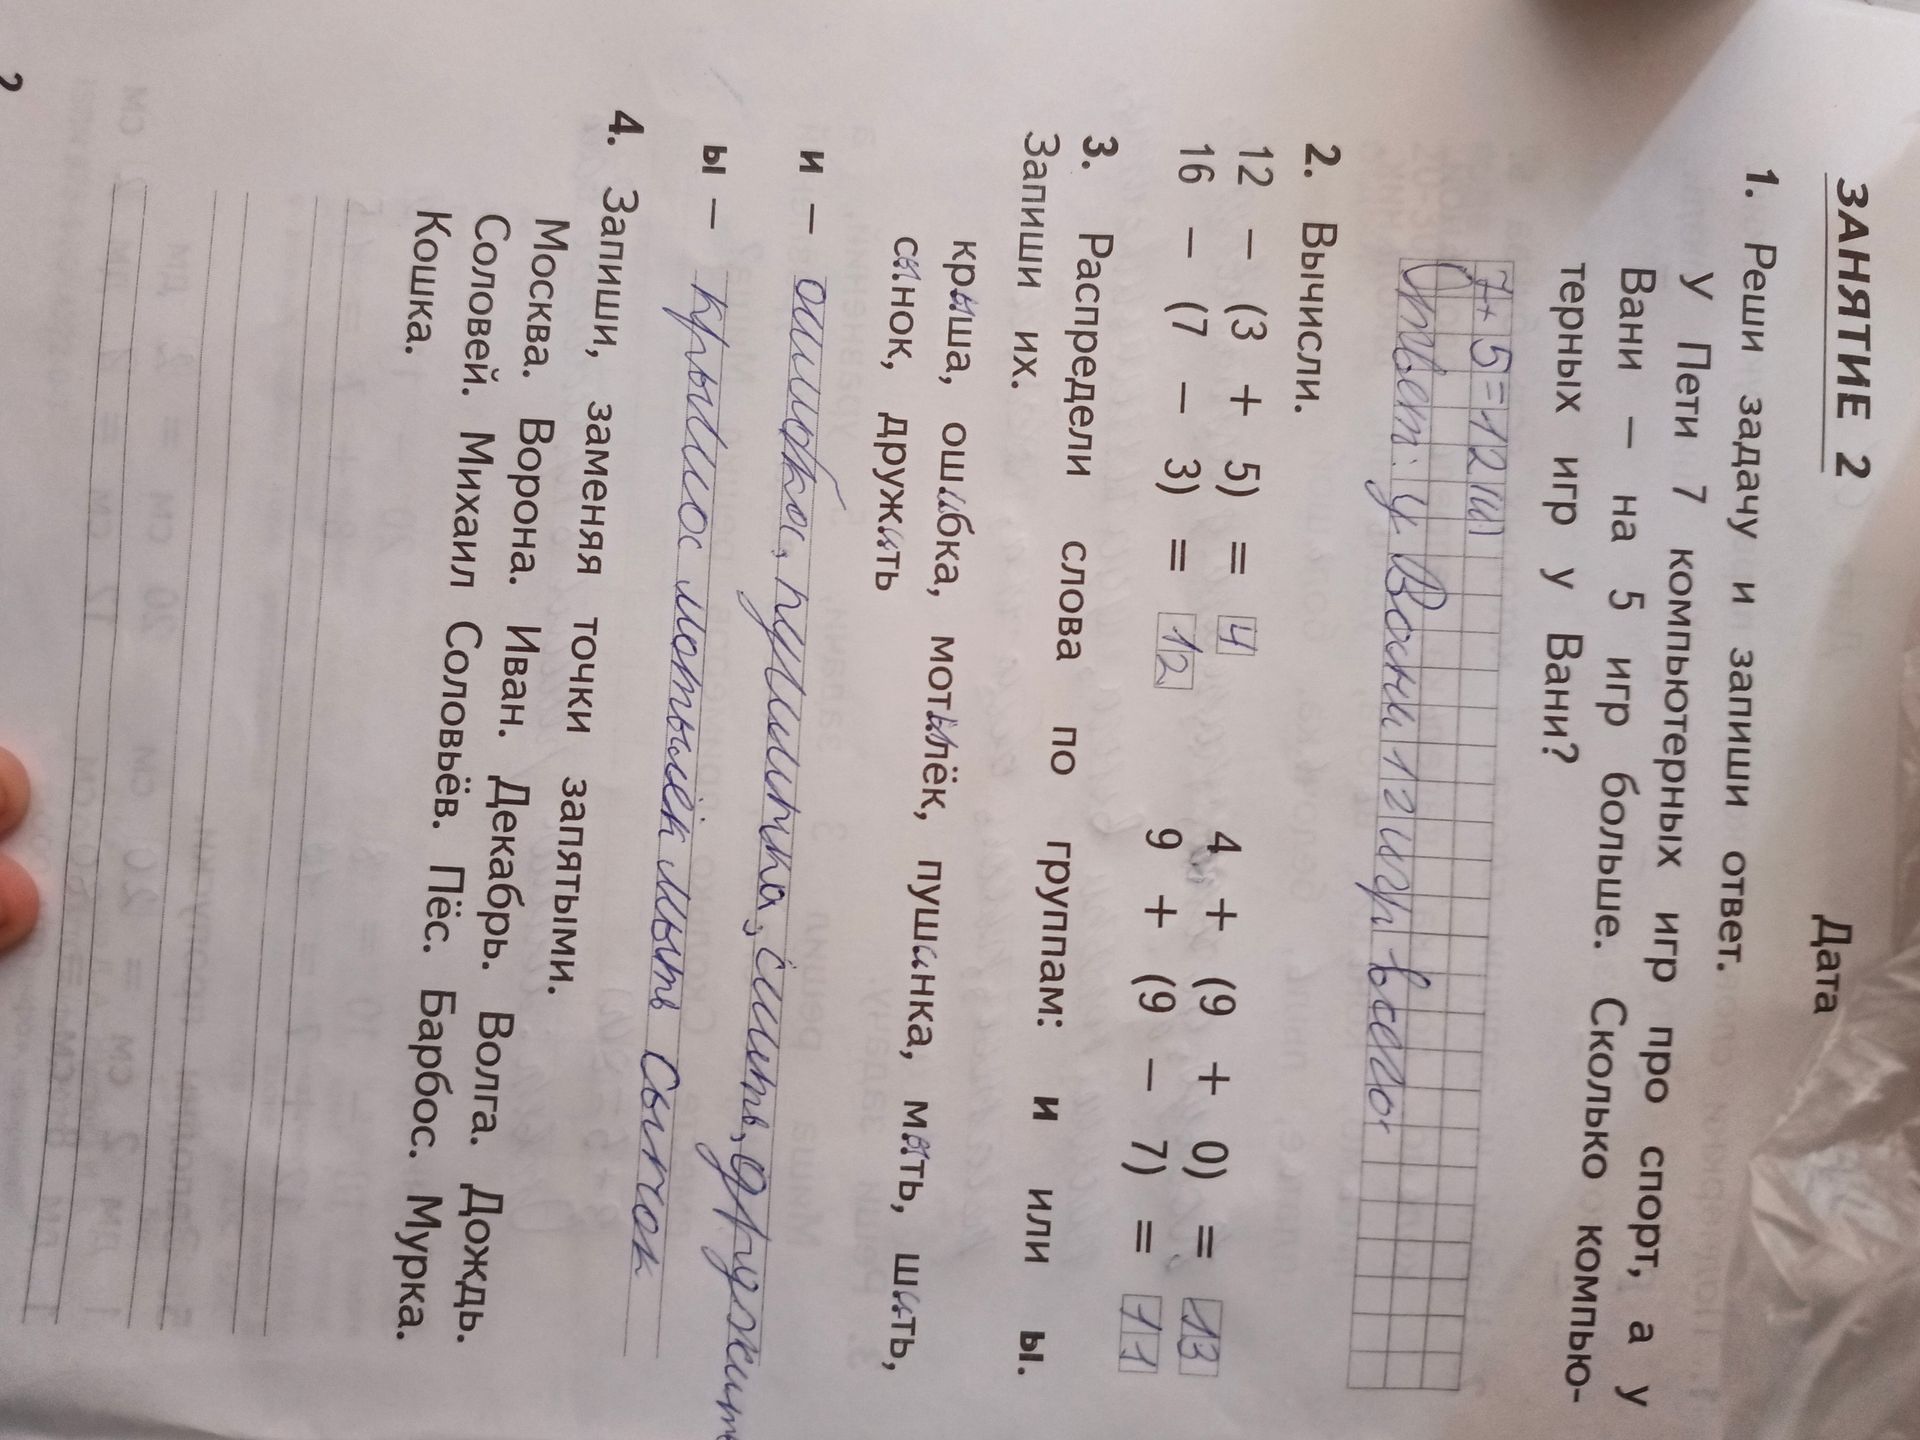 ЗАНЯТИЕ 2 Дата
1. Реши задачу и запиши ответ.
У Пети 7 компьютерных игр про спорт, а у
Вани – на 5 игр больше. Сколько компью-
терных игр у Вани?
7+5=12(и)
Ответ: у Вани 12 игр всего.
2. Вычисли.
12 – (3 + 5) = 4 4 + (9 + 0) = 13
16 – (7 – 3) = 12 9 + (9 – 7) = 11
3. Распредели слова по группам: и или ы.
Запиши их.
крыша, ошибка, мотылёк, пушинка, мыть, шить,
сынок, дружить
и – ошибка, пушинка, шить, дружить
ы – крыша мотылёк мыть сынок
4. Запиши, заменяя точки запятыми.
Москва. Ворона. Иван. Декабрь. Волга. Дождь.
Соловей. Михаил Соловьёв. Пёс. Барбос. Мурка.
Кошка.
2